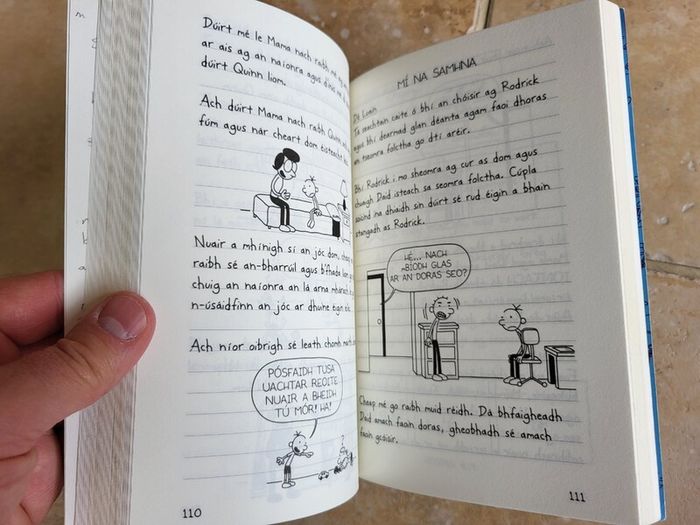 Dúirt mé le Mama nach raibh mé ag
ar ais ag an naíonra agus d'inis mé
dúirt Quinn liom.
Ach dúirt Mama nach raibh Quinn
fúm agus nár cheart dom éisteacht
Nuair a mhínigh sí an jóc dom, cheap
raibh sé an-bharrúil agus b'fhada liom
chuig an naíonra an lá arna mhárach
n-úsáidfinn an jóc ar dhuine éigin eile.
Ach níor oibrigh sé leath chomh maith
PÓSFAIDH TUSA
UACHTAR REOITE
NUAIR A BHEIDH
TÚ MÓR! HA!
110
MÍ NA SAMHNA
Dé Luain
Tá seachtain caite ó bhí an chóisir ag Rodrick
agus bhí dearmad glan déanta agam faoi dhoras
an tseomra folctha go dtí aréir.
Bhí Rodrick i mo sheomra ag cur as dom agus
chuaigh Daid isteach sa seomra folctha. Cúpla
soicind ina dhiaidh sin dúirt sé rud éigin a bhain
stangadh as Rodrick.
HÉ... NACH
mBÍODH GLAS
AR AN DORAS SEO?
Cheap mé go raibh muid réidh. Dá bhfaigheadh
Daid amach faoin doras, gheobhadh sé amach
faoin gcóisir.
111